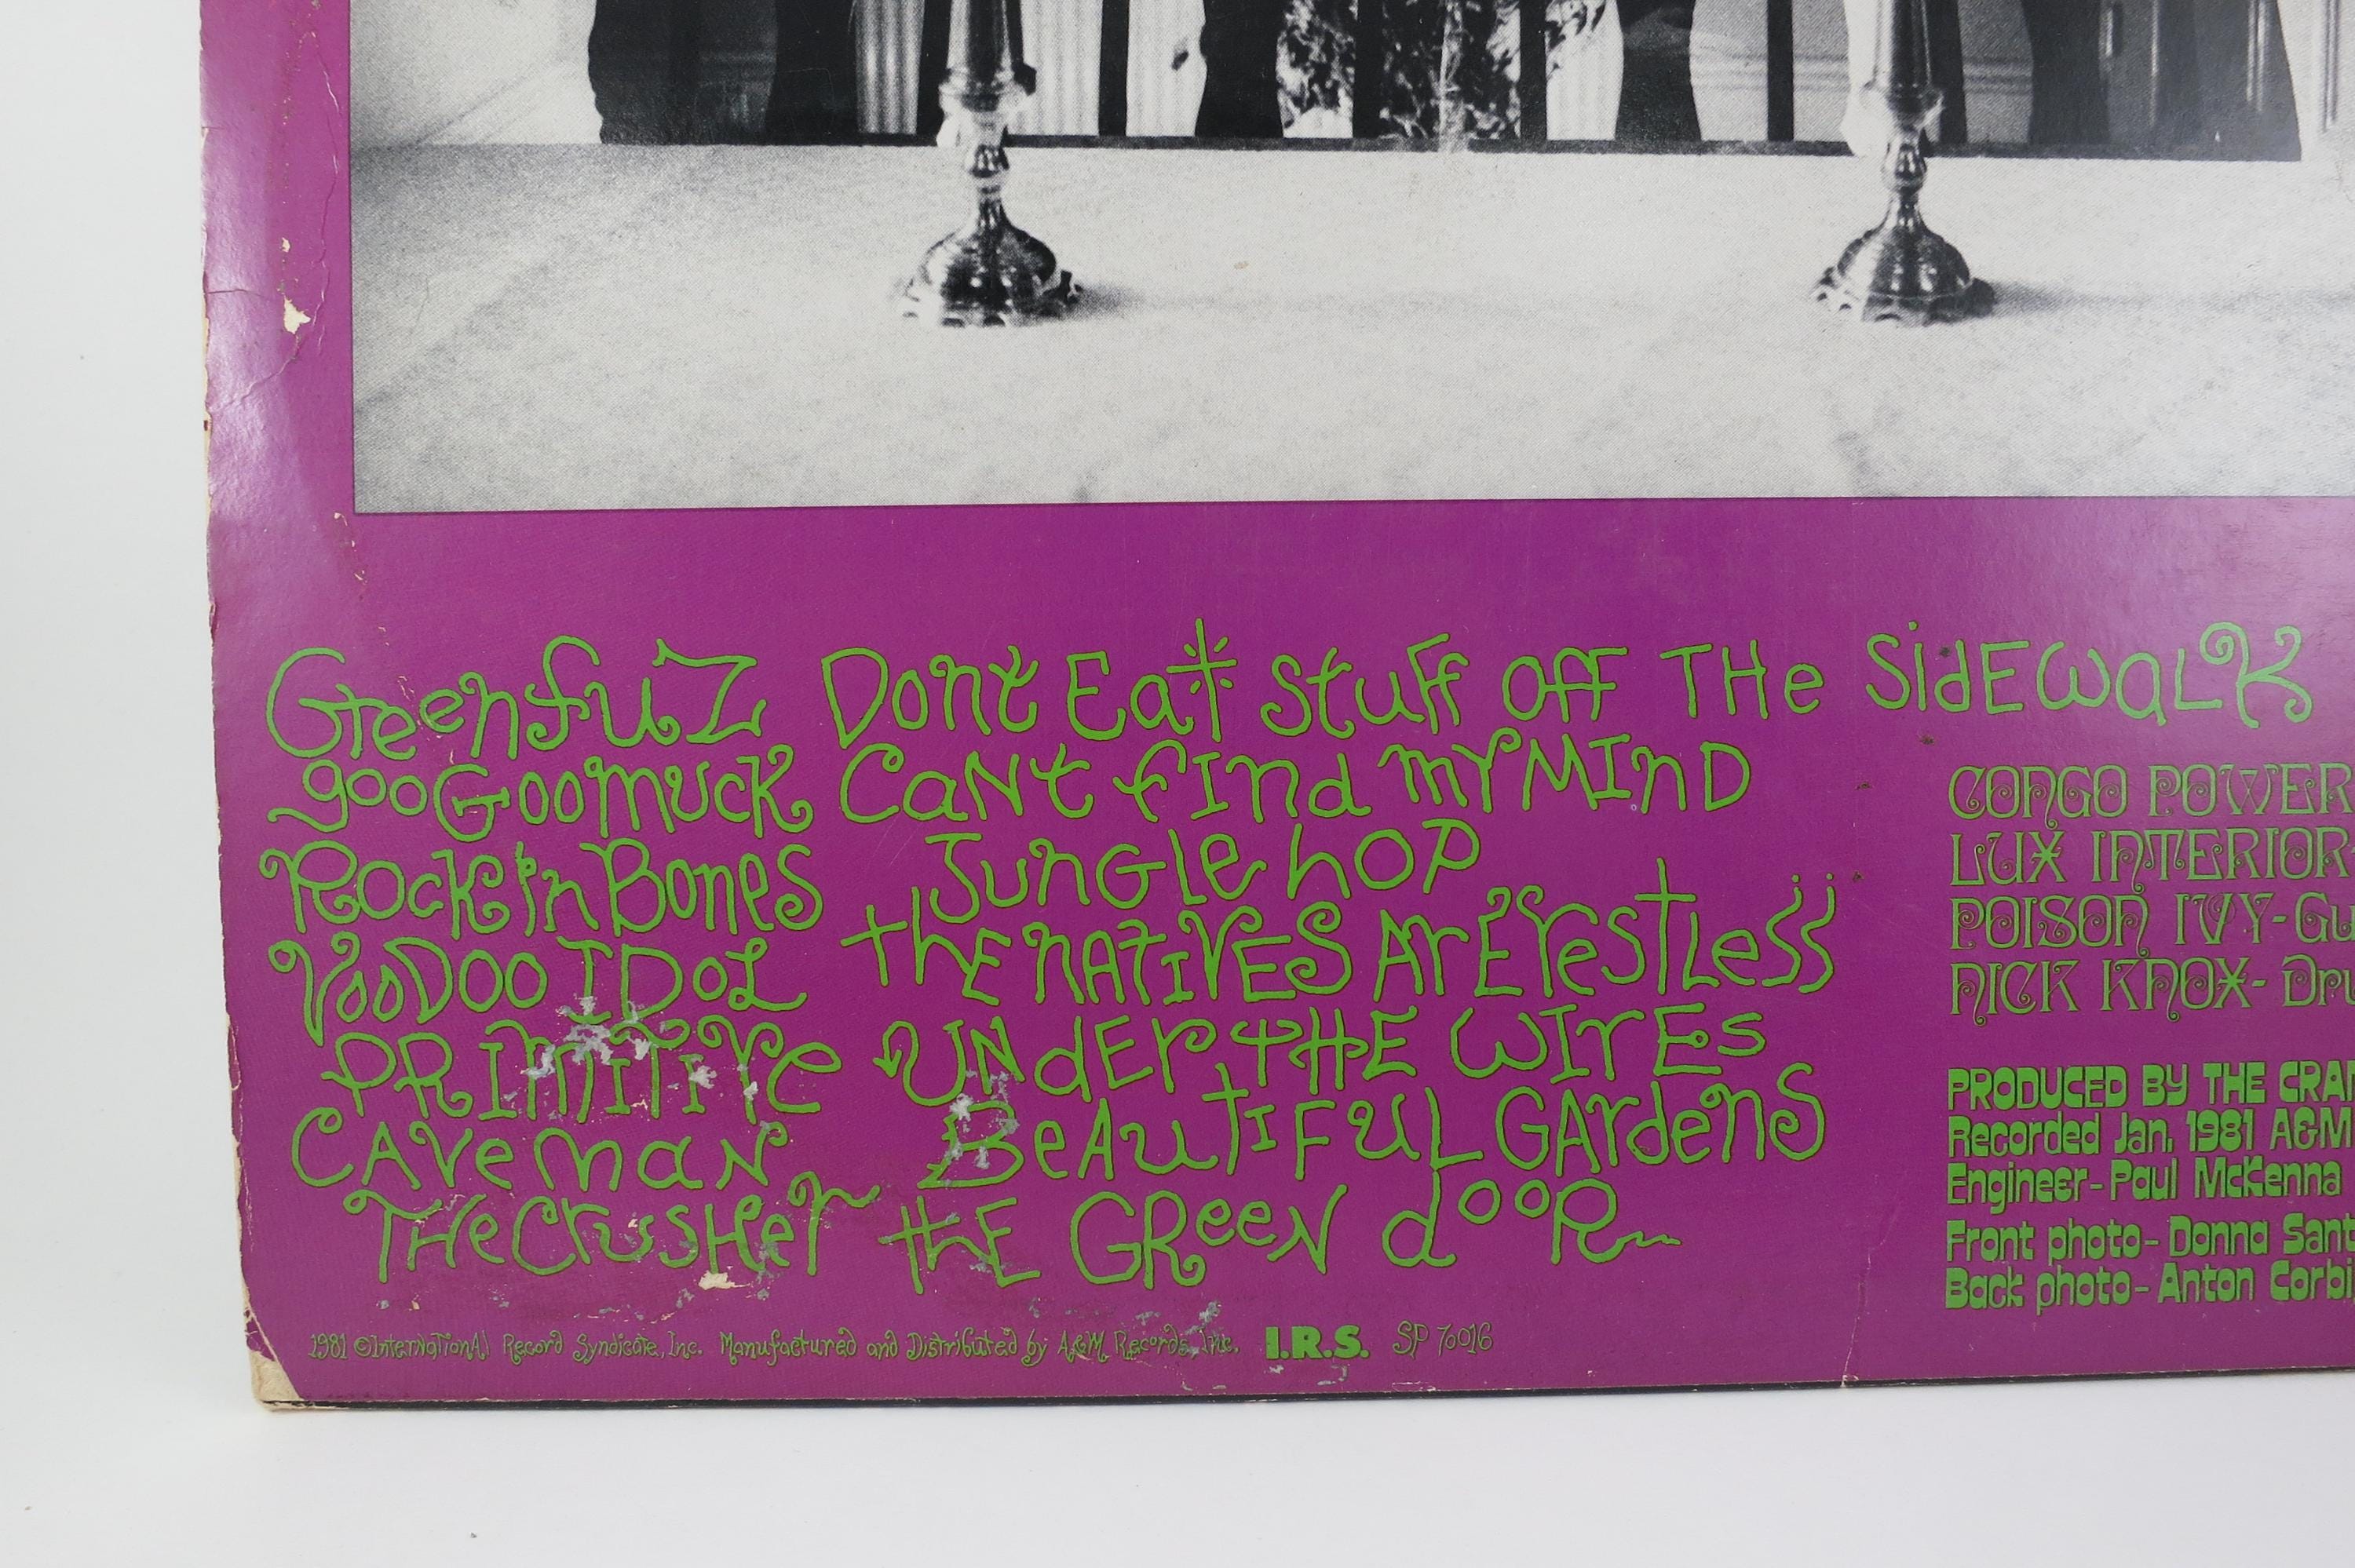 GreenfuZ Dont Eat Stuff Off THe SidEwaLK
gooGoomucK CaNt fInd mYMInD
RocK in BonES JunGle hOP
VooDOO IDoL thE NATIVES ArE resTLess
PRImITIVe UNdEr tHE WIrEs
CAVemaN BeAuTIFuL GArdenS
THeCrusHer thE GReeN dooR
CONGO POWER
LUX INTERIOR-
POISON IVY-Gu
NICK KNOX- Dru
PRODUCED BY THE CRAM
Recorded Jan. 1981 A&M
Engineer- Paul McKenna
Front photo- Donna Sant
Back photo- Anton Corbi
1981 ©InternaTionAl Record Syndicate, Inc. Manufactured and Distributed by A&M Records, Inc. I.R.S. SP 70016